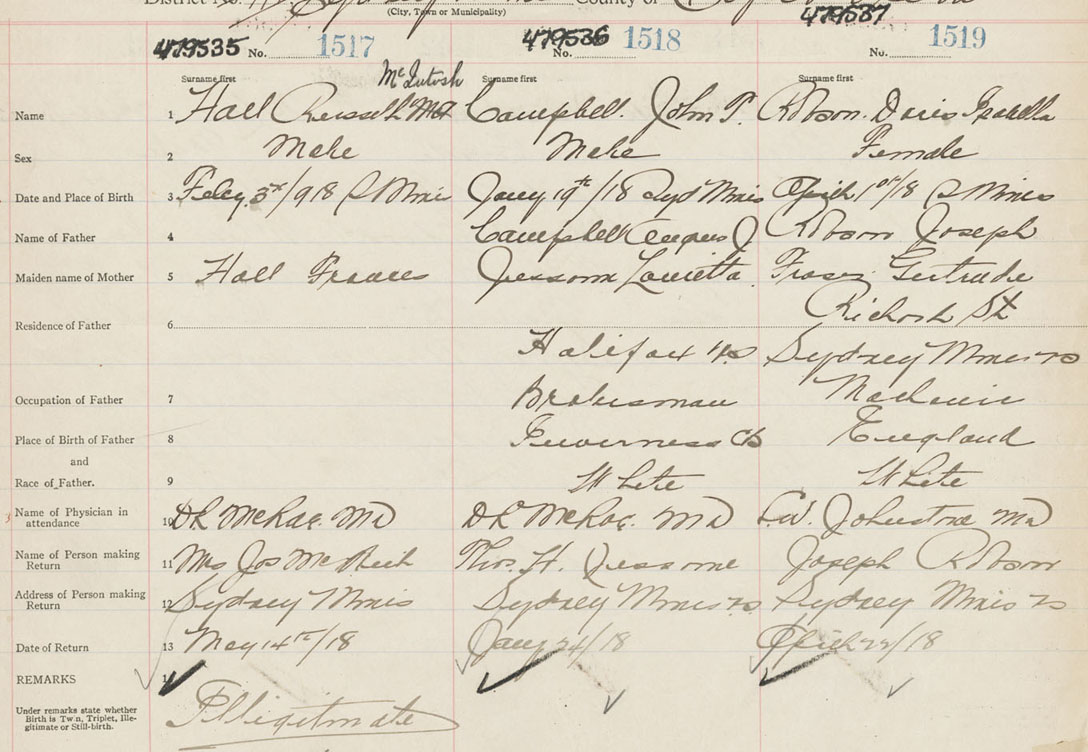 District No. County of
(City, Town or Municipality)
479535 No. 1517 479536 No. 1518 479537 No. 1519
McIntosh
Surname first Surname first Surname first
Name 1 Hall Russell Campbell. John T. Robson. Doris Isabella
Sex 2 Male Male Female
Date and Place of Birth 3 Feby 3rd/918 S Mines Jany 19th/18 Syd Mines April 1st/18 S Mines
Name of Father 4 Campbell Angus J Robson Joseph
Maiden name of Mother 5 Hall Frances Jessome Louretta Fraser Gertrude
Residence of Father 6 Richards St
Halifax NS Sydney Mines NS
Occupation of Father 7 Brakesman Machinist
Place of Birth of Father 8 Inverness CB England
and
Race of Father. 9 White White
Name of Physician in attendance 10 DL McRae. MD DL McRae. MD Johnstone MD
Name of Person making Return 11 Mrs Jos Thos. H. Jessome Joseph Robson
Address of Person making Return 12 Sydney Mines Sydney Mines NS Sydney Mines NS
Date of Return 13 May 14th/18 Jany 24/18 April 22/18
REMARKS 14
Under remarks state whether Birth is Twin, Triplet, Ille-
gitimate or Still-birth.
Illigitmate